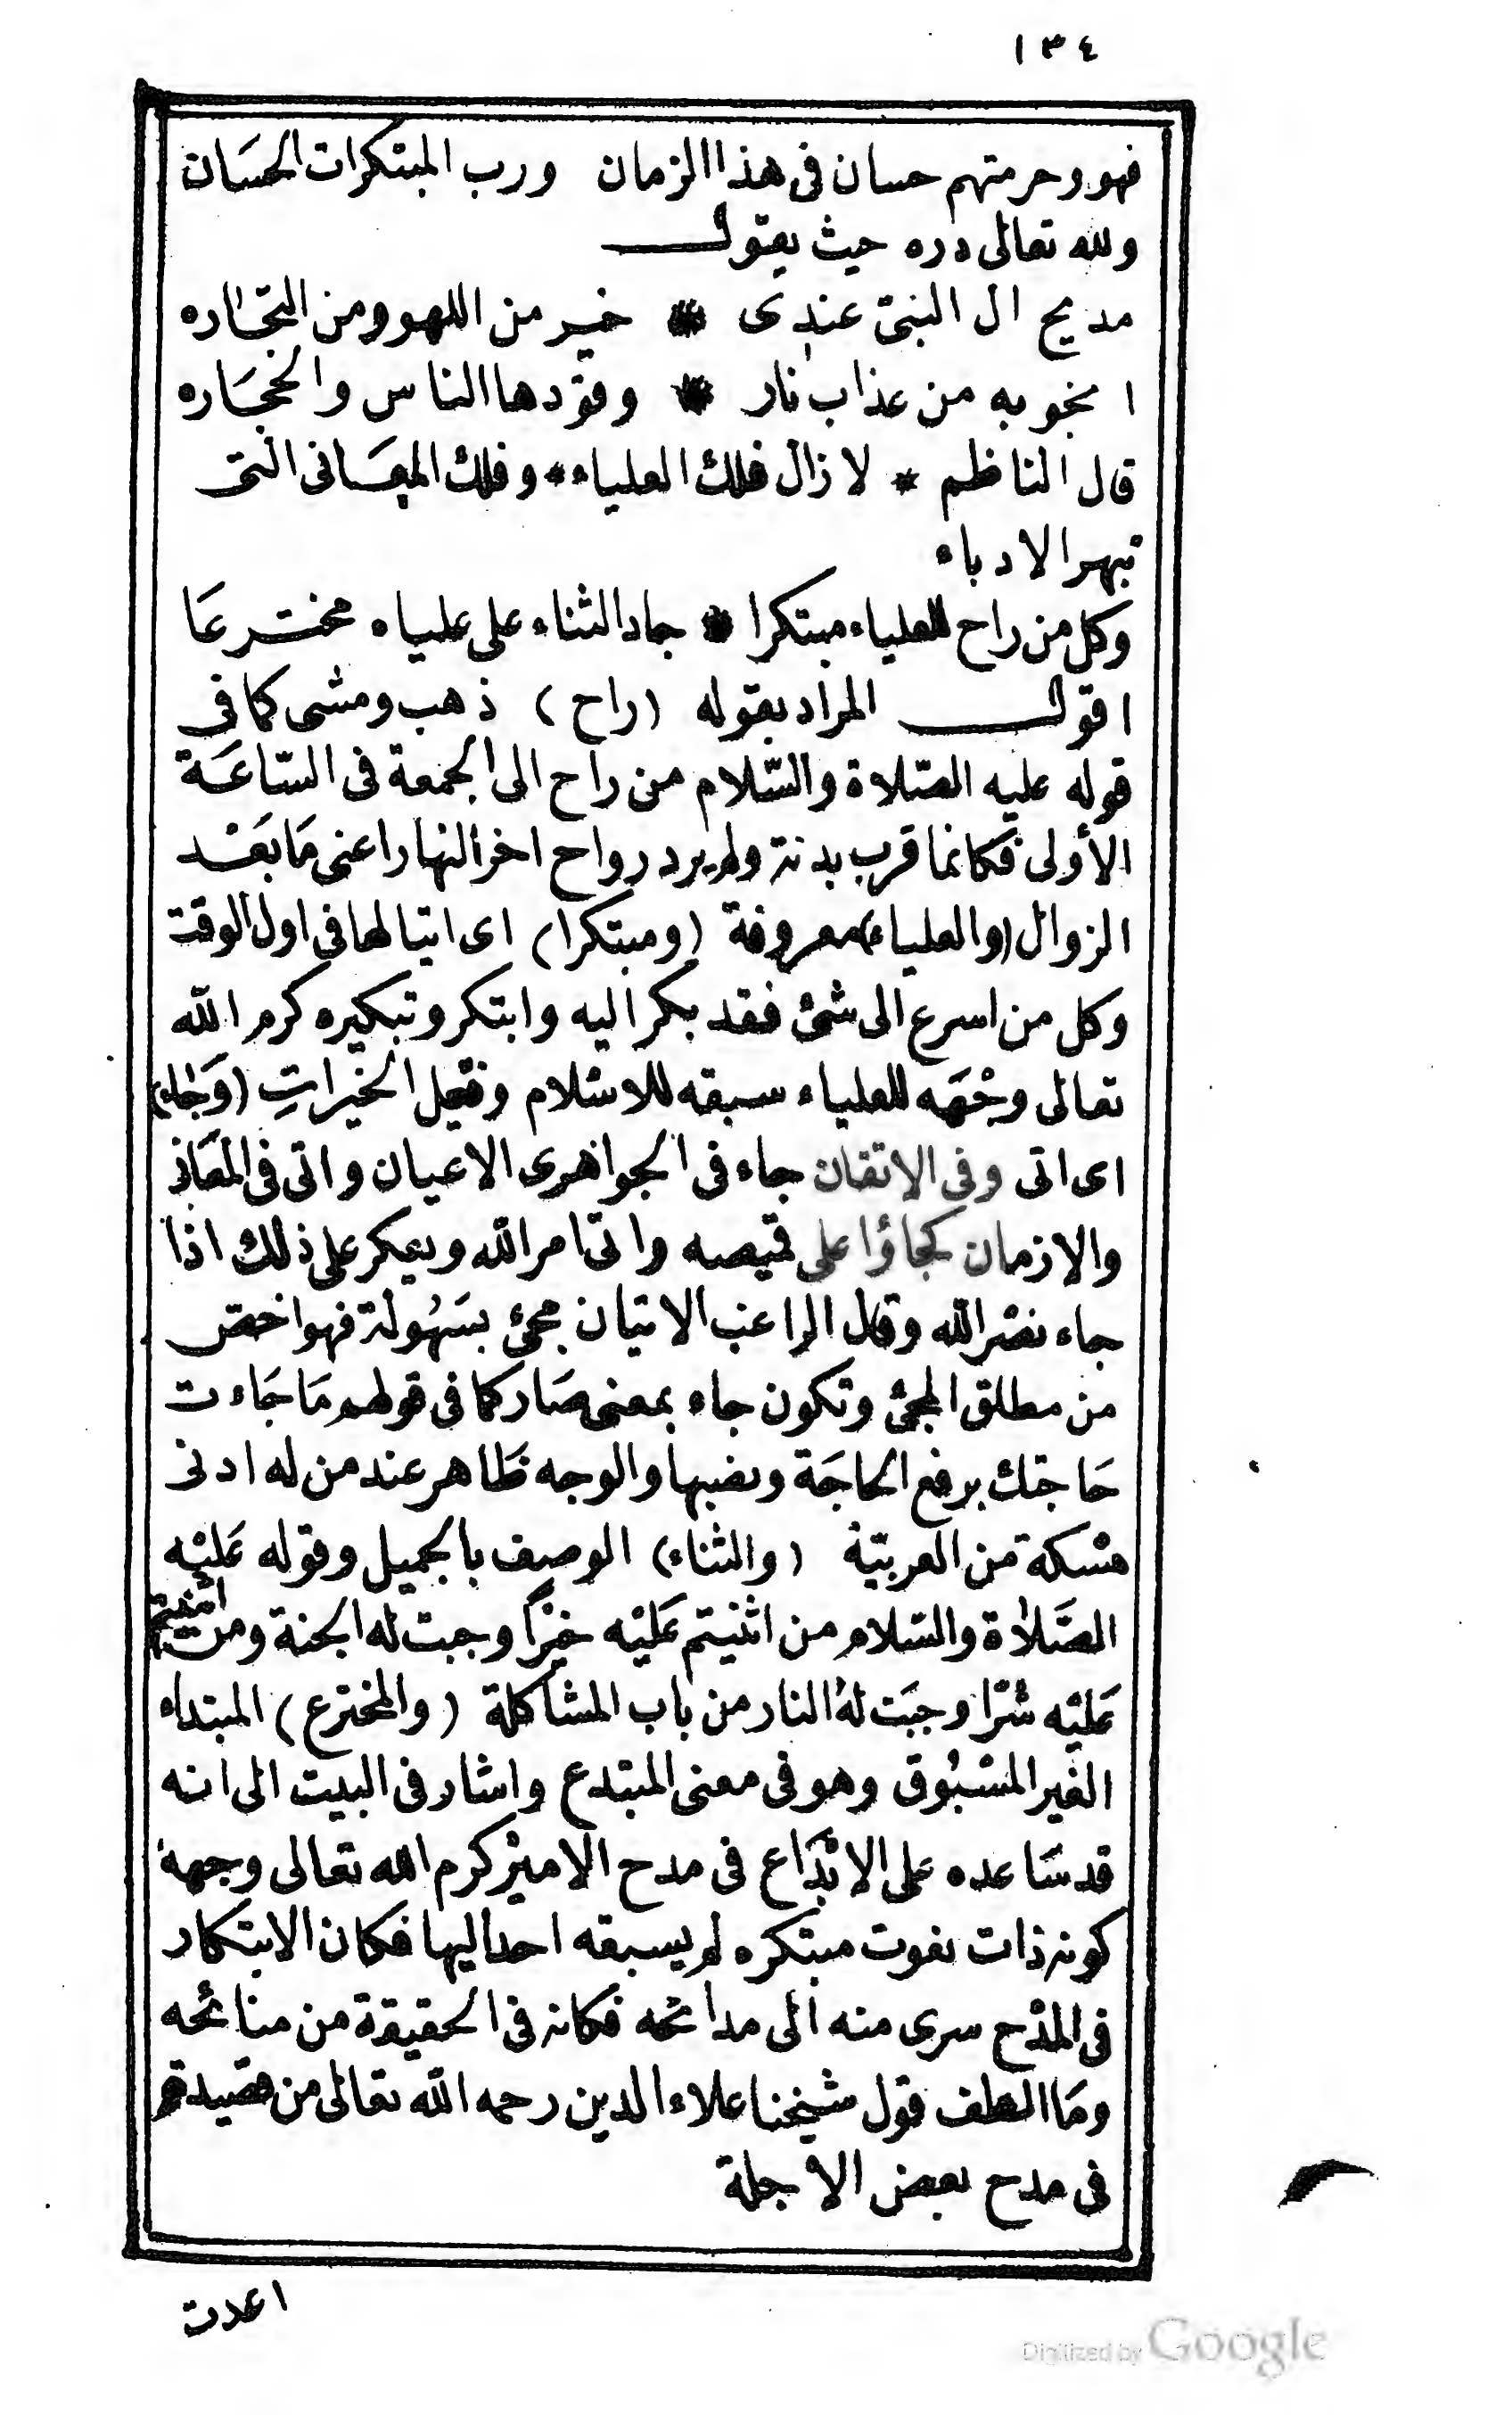 ١٣٤
فهو وحرمتهم حسان فى هذا الزمان ورب المبتكرات الحسَان
ولله تعالى دره حيث يقول
مديح ال النبىّ عندى * خير من اللهو ومن التجاره
انجو به من عذاب نار * وقودها الناس والحجَاره
قال الناظم * لا زال فلك العلياء * وفلك المعَانى التى
تبهر الادباء
وكل من راح للعلياء مبتكرا * جاء الثناء على علياه مخترعَا
اقول المراد بقوله (راح) ذهب ومشى كما فى
قوله عليه الصّلاة والسّلام من راح الى الجمعة فى السّاعَة
الأولى فكانما قرب بدنة ولم يرد رواح اخر النهار اعنى مَا بَعْد
الزوال (والعلياء) معروفة (ومبتكرا) اى اتيا لها فى اول الوقت
وكل من اسرع الى شئ فقد بكر اليه وابتكر وتبكيره كرم الله
تعالى وجْهَه للعلياء سبقه للاسْلام وفعْل الخيراتِ (وَجَاء)
اى اتى وفى الاتقان جاء فى الجواهرى الاعيان واتى فى المعَانى
والازمان كجاؤا على قميصه واتى امر الله ويعكر على ذلك اذا
جاء نصْر الله وقال الراغب الاتيان مجئ بسَهُولة فهو اخصّ
من مطلق المجئ وتكون جاء بمعنى صَار كما فى قولهم مَا جَاءت
حَاجتك برفع الحاجَة ونصبها والوجه ظَاهر عند من له ادنى
مسْكة من العربيّة (والثناء) الوصف بالجميل وقوله عَليْه
الصَّلاة والسّلام من اثنيتم عَليْه خيْرًا وجبت له الجنة ومن اثنيتم
عَليْه شرّا وجبَت لهُ النار من باب المشاكلة (والمخترع) المبتداء
الغير المسْبُوق وهو فى معنى المبتدع واشار فى البيت الى انه
قد سَاعده على الابْدَاع فى مدح الاميْر كرم الله تعالى وجهه
كونه ذات نعوت مبتكره لم يسبقه احد اليها فكان الابتكار
فى المدْح سرى منه الى مدائحه فكانه فى الحقيقة من منائحه
ومَا الطف قول شيخنا علاء الدين رحمه الله تعالى من قصيدة
فى مدح بعض الاجلة
اعدت
Digitized by Google